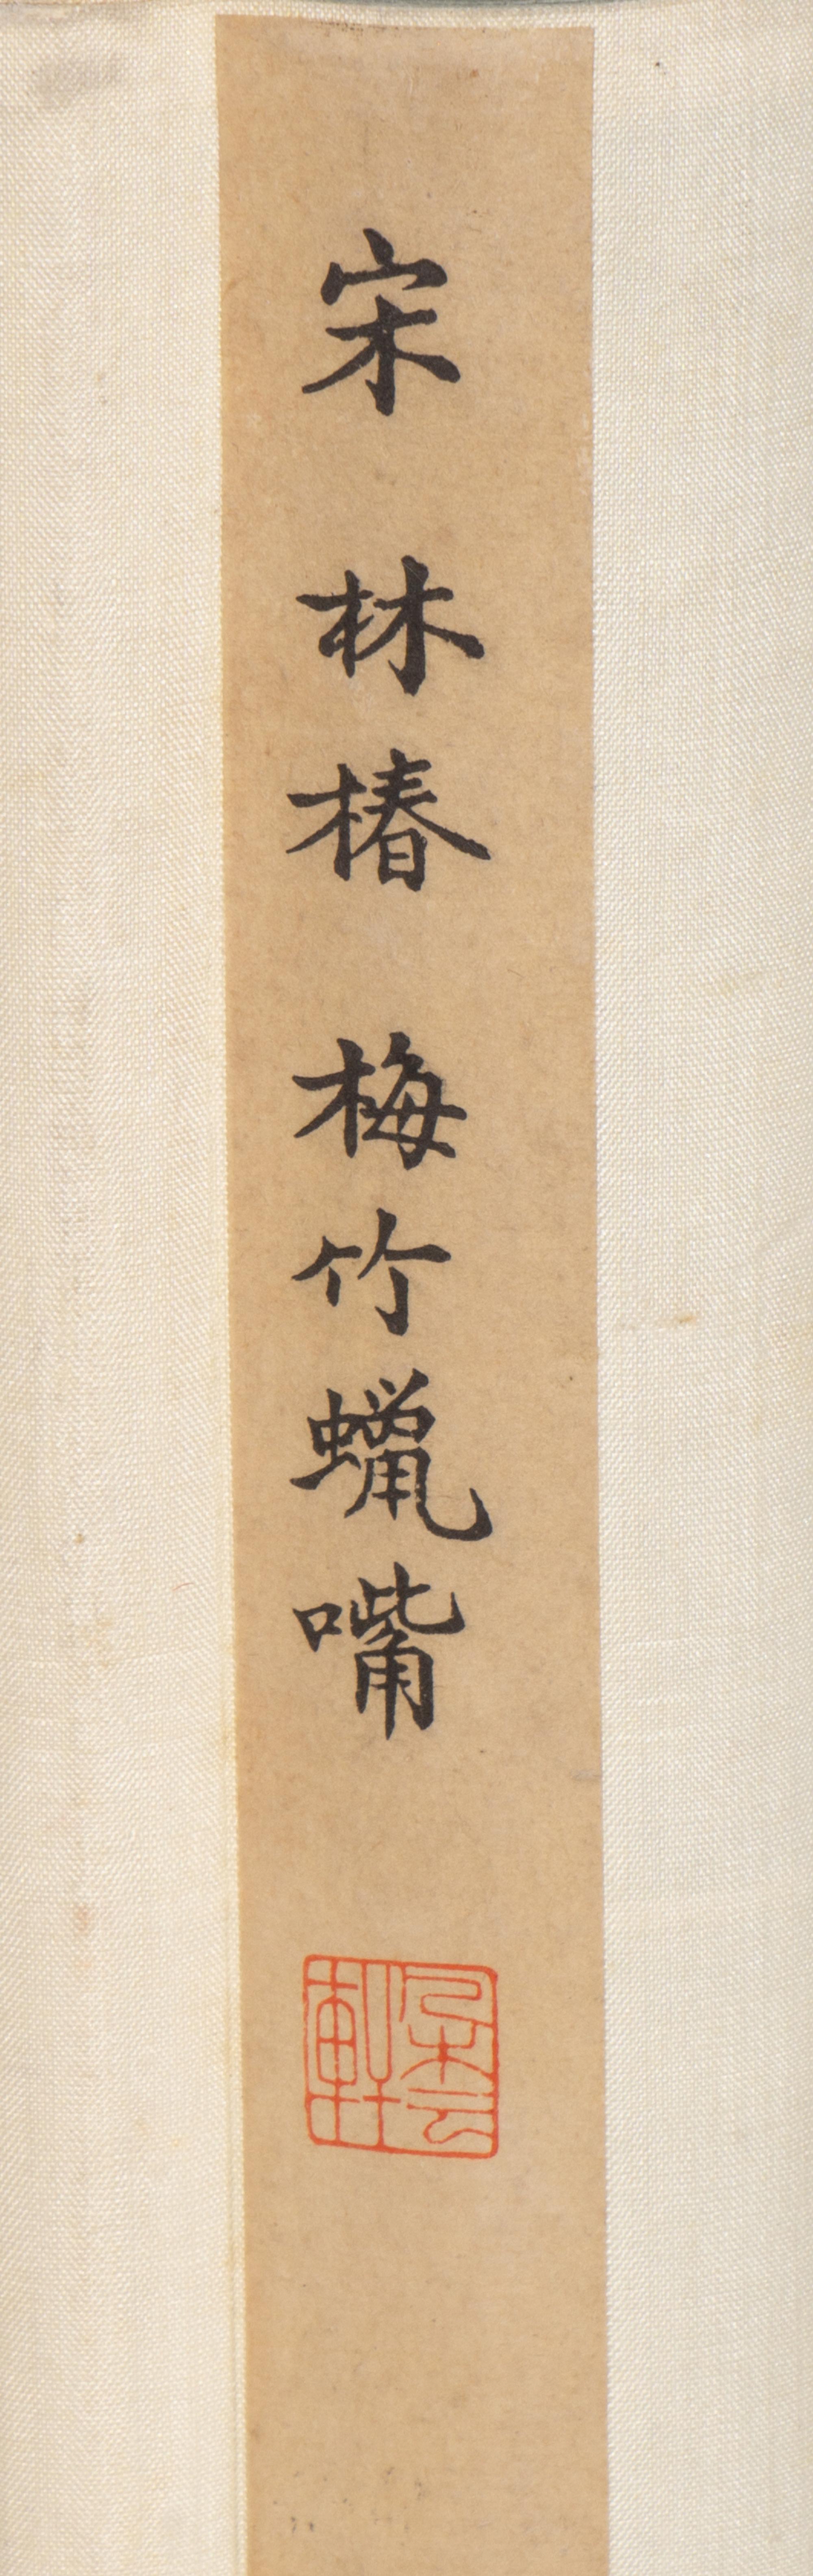 宋 林椿 梅竹蠟嘴